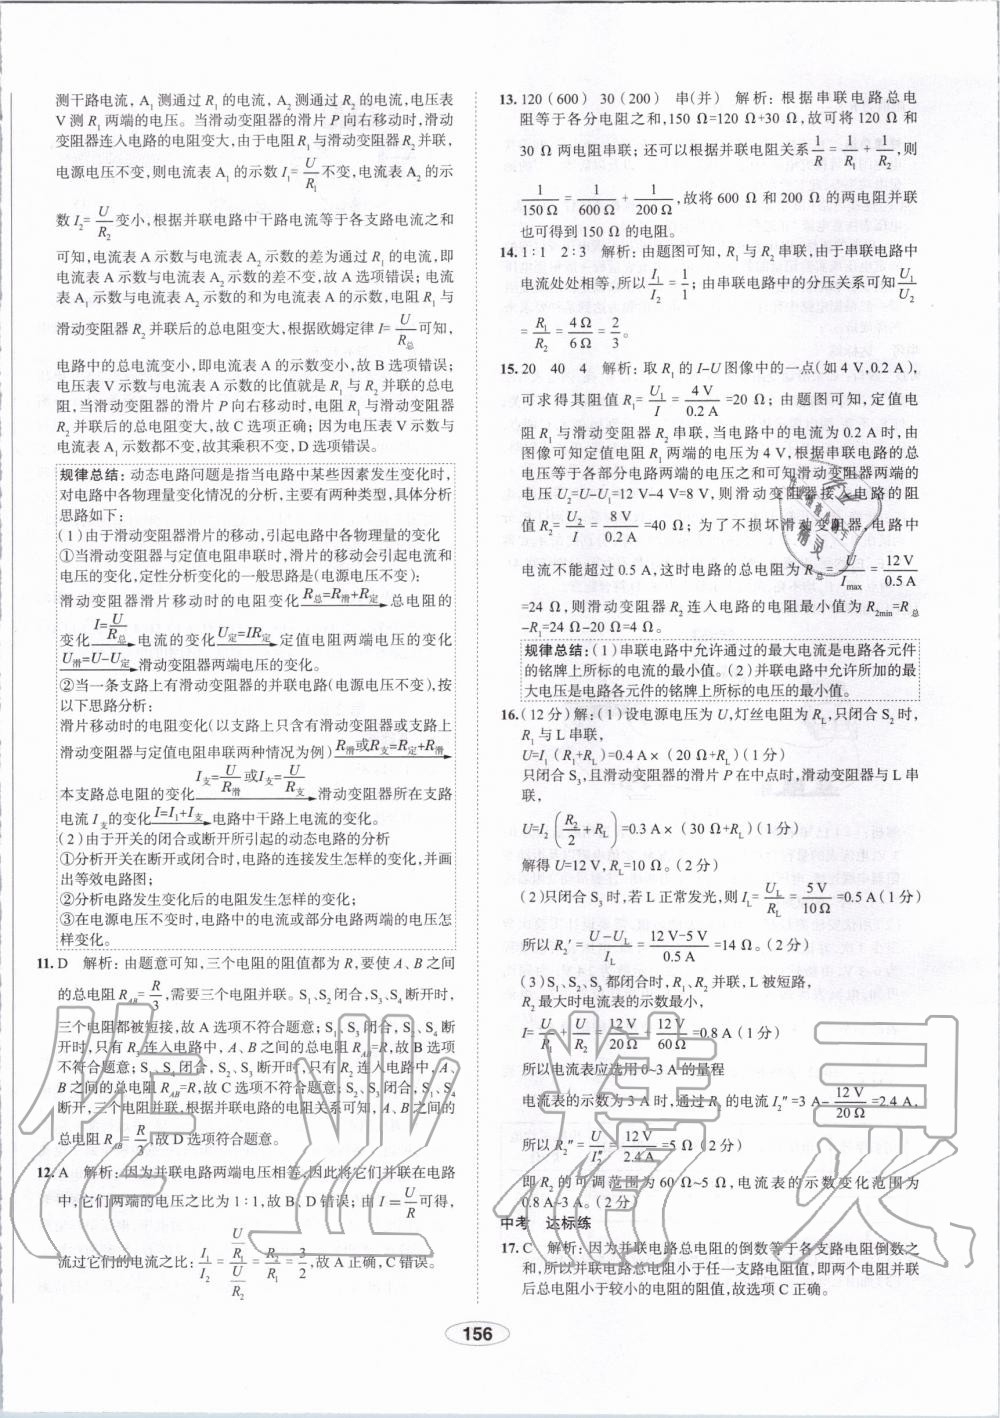 测干路电流，A₁测通过 R₁ 的电流，A₂ 测通过 R₂ 的电流，电压表
V 测 R₁ 两端的电压。当滑动变阻器的滑片 P 向右移动时，滑动
变阻器连入电路的电阻变大，由于电阻 R₁ 与滑动变阻器 R₂ 并联，
电源电压不变，则电流表 A₁ 的示数 I₁=U/R₁不变，电流表 A₂ 的示
数 I₂=U/R₂变小，根据并联电路中干路电流等于各支路电流之和
可知，电流表 A 示数与电流表 A₂ 示数的差为通过 R₁ 的电流，即
电流表 A 示数与电流表 A₂ 示数的差不变，故 A 选项错误；电流
表 A₁ 示数与电流表 A₂ 示数的和为电流表 A 的示数，电阻 R₁ 与
滑动变阻器 R₂ 并联后的总电阻变大，根据欧姆定律 I=U/R总可知，
电路中的总电流变小，即电流表 A 的示数变小，故 B 选项错误；
电压表 V 示数与电流表 A 示数的比值就是 R₁ 与 R₂ 并联的总电
阻，当滑动变阻器的滑片 P 向右移动时，电阻 R₁ 与滑动变阻器
R₂ 并联后的总电阻变大，故 C 选项正确；因为电压表 V 示数与
电流表 A₁ 示数都不变，故其乘积不变，D 选项错误。
规律总结：动态电路问题是指当电路中某些因素发生变化时，
对电路中各物理量变化情况的分析，主要有两种类型，具体分析
思路如下：
（1）由于滑动变阻器滑片的移动，引起电路中各物理量的变化
①当滑动变阻器与定值电阻串联时，滑片的移动会引起电流和
电压的变化，定性分析变化的一般思路是（电源电压不变）：
滑动变阻器滑片移动时的电阻变化 R总=R滑+R定 总电阻的
变化 I=U/R总 电流的变化 U定=IR定 定值电阻两端电压的变化
U滑=U-U定 滑动变阻器两端电压的变化。
②当一条支路上有滑动变阻器的并联电路（电源电压不变），按
以下思路分析：
滑片移动时的电阻变化（以支路上只含有滑动变阻器或支路上
滑动变阻器与定值电阻串联两种情况为例） R滑或R支=R定+R滑
本支路总电阻的变化 I支=U/R滑或I支=U/R支 滑动变阻器所在支路
电流 I支的变化 I=I₁+I支 电路中干路上电流的变化。
（2）由于开关的闭合或断开所引起的动态电路的分析
①分析开关在断开或闭合时，电路的连接发生怎样的变化，并画
出等效电路图；
②分析电路发生变化后的电阻发生怎样的变化；
③在电源电压不变时，电路中的电流或部分电路两端的电压怎
样变化。
11. D　解析：由题意可知，三个电阻的阻值都为 R，要使 A、B 之间
的总电阻 R_AB=R/3，需要三个电阻并联。S₁、S₂ 闭合，S₃、S₄ 断开时，
三个电阻都被短接，故 A 选项不符合题意；S₁、S₃ 闭合，S₂、S₄ 断
开时，只有 R₃ 连入电路中，A、B 之间的总电阻 R_AB=R，故 B 选项
不符合题意；S₂、S₄ 闭合，S₁、S₃ 断开时，只有 R₁ 连入电路中，A、
B 之间的总电阻 R_AB=R，故 C 选项不符合题意；S₂、S₃ 闭合，S₁、S₄
断开，三个电阻并联，根据并联电路的电阻关系可知，A、B 之间的
总电阻 R_AB=R/3，故 D 选项符合题意。
12. A　解析：因为并联电路两端电压相等，因此将它们并联在电路
中，它们两端的电压之比为 1∶1，故 B、D 错误；由 I=U/R可得，
流过它们的电流之比：I₁/I₂=(U/R₁)/(U/R₂)=R₂/R₁=3/2，故 A 正确，C 错误。
13. 120（600）　30（200）　串（并）　解析：根据串联电路总电
阻等于各分电阻之和，150 Ω=120 Ω+30 Ω，故可将 120 Ω 和
30 Ω 两电阻串联；还可以根据并联电阻关系1/R=1/R₁+1/R₂，则
1/150 Ω=1/600 Ω+1/200 Ω，故将 600 Ω 和 200 Ω 的两电阻并联
也可得到 150 Ω 的电阻。
14. 1∶1　2∶3　解析：由题图可知，R₁ 与 R₂ 串联，由于串联电路中
电流处处相等，所以I₁/I₂=1/1；由串联电路中的分压关系可知U₁/U₂
=R₁/R₂=4 Ω/6 Ω=2/3。
15. 20　40　4　解析：取 R₁ 的 I-U 图像中的一点（如 4 V，0.2 A），
可求得其阻值 R₁=U₁/I=4 V/0.2 A=20 Ω；由题图可知，定值电
阻 R₁ 与滑动变阻器 R₂ 串联，当电路中的电流为 0.2 A 时，由
图像可知定值电阻 R₁ 两端的电压为 4 V，根据串联电路的总
电压等于各部分电路两端的电压之和可知滑动变阻器两端的
电压 U₂=U-U₁=12 V-4 V=8 V，则滑动变阻器接入电路的阻
值 R₂=U₂/I=8 V/0.2 A=40 Ω；为了不损坏滑动变阻器，电路中
电流不能超过 0.5 A，这时电路的总电阻为 R总=U/Imax=12 V/0.5 A
=24 Ω，则滑动变阻器 R₂ 连入电路的电阻最小值为 R₂min=R总
-R₁=24 Ω-20 Ω=4 Ω。
规律总结：（1）串联电路中允许通过的最大电流是电路各元件
的铭牌上所标的电流的最小值。（2）并联电路中允许所加的最
大电压是电路各元件的铭牌上所标的电压的最小值。
16.（12 分）解：（1）设电源电压为 U，灯丝电阻为 R_L，只闭合 S₂ 时，
R₁ 与 L 串联，
U=I₁（R₁+R_L）=0.4 A×（20 Ω+R_L）（1 分）
只闭合 S₃，且滑动变阻器的滑片 P 在中点时，滑动变阻器与 L 串
联，
U=I₂（R₂/2+R_L）=0.3 A×（30 Ω+R_L）（1 分）
解得 U=12 V，R_L=10 Ω。（2 分）
（2）只闭合 S₃ 时，若 L 正常发光，则 I_L=U_L/R_L=5 V/10 Ω=0.5 A（1 分）
所以 R₂′=(U-U_L)/I_L=(12 V-5 V)/0.5 A=14 Ω。（2 分）
（3）S₁、S₂、S₃ 都闭合时，R₁、R₂ 并联，L 被短路，
R₂ 最大时电流表的示数最小，
I=U/R₁+U/R₂=12 V/20 Ω+12 V/60 Ω=0.8 A（1 分）
所以电流表应选用 0~3 A 的量程
电流表的示数为 3 A 时，通过 R₂ 的电流 I₂″=3 A-12 V/20 Ω=2.4 A，
所以 R₂″=U/I₂″=12 V/2.4 A=5 Ω（2 分）
即 R₂ 的可调范围为 60 Ω~5 Ω，电流表的示数变化范围为
0.8 A~3 A。（2 分）
中考　达标练
17. C　解析：因为并联电路总电阻的倒数等于各支路电阻倒数之
和，所以并联电路总电阻小于任一支路电阻值，即两个电阻并联
后总电阻小于较小的电阻的阻值，故选项 C 正确。
156
作业精灵